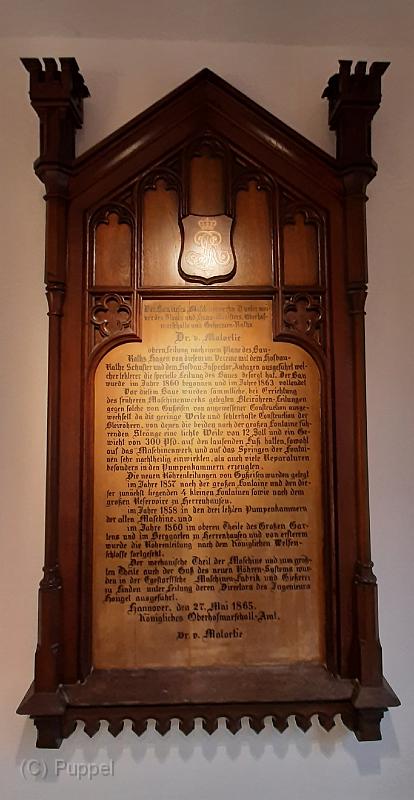 Dr. v. Malortie
obern Leitung nach einem Plane des Bau-
Raths Hagen von diesem im Vereine mit dem Hofbau-
Rathe Schuster und dem Hofbau-Inspector Auhagen ausgeführt
welche letzterer die specielle Leitung des Baues besorgt hat. Der Bau
wurde im Jahre 1860 begonnen und im Jahre 1863 vollendet
Vor diesem Baue wurden sämmtliche, bei Errichtung
des früheren Maschinenwerks gelegten Bleiröhren-Leitungen
gegen solche von Gußeisen von angemessener Construction ausge-
wechselt da die geringe Weite und fehlerhafte Construction der
Bleiröhren, von denen die beiden nach der großen Fontaine füh-
renden Stränge eine lichte Weite von 12 Zoll und ein Ge-
wicht von 300 Pfd. auf den laufenden Fuß hatten, sowohl
auf das Maschinenwerk und auf das Springen der Fontai-
nen sehr nachtheilig einwirkten, als auch viele Reparaturen
besonders in den Pumpenkammern erzeugten.
Die neuen Röhrenleitungen von Gußeisen wurden gelegt
im Jahre 1857 nach der großen Fontaine und den die-
ser zunächst liegenden 4 kleinen Fontainen sowie nach dem
großen Reservoire zu Herrenhausen.
im Jahre 1858 in den drei letzten Pumpenkammern
der alten Maschine, und
im Jahre 1860 im oberen Theile des Großen Gar-
tens und im Berggarten zu Herrenhausen und von ersterem
wurde die Röhrenleitung nach dem Königlichen Welfen-
schlosse fortgesetzt.
Der mechanische Theil der Maschine und zum größ-
ten Theile auch der Guß des neuen Röhren-Systems wur-
den in der Egestorffschen Maschinen-Fabrik und Gießerei
zu Linden unter Leitung deren Directors des Ingenieurs
Houget ausgeführt.
Hannover, den 27. Mai 1865.
Königliches Oberhofmarschall-Amt.
Dr. v. Malortie
(C) Puppel